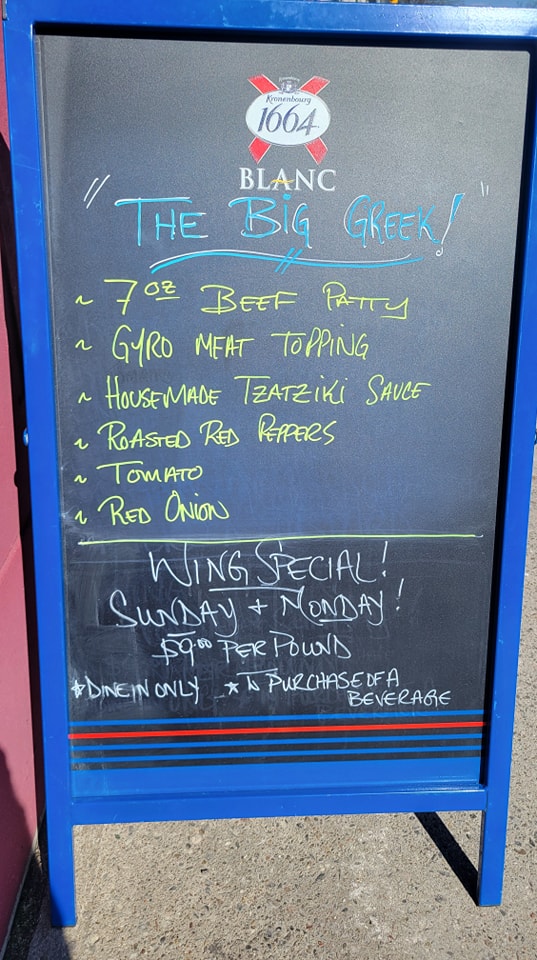 Kronenbourg
1664
BLANC
"THE BIG GREEK!"
~ 7 oz BEEF PATTY
~ GYRO MEAT TOPPING
~ HOUSEMADE TZATZIKI SAUCE
~ ROASTED RED PEPPERS
~ TOMATO
~ RED ONION
WING SPECIAL!
SUNDAY + MONDAY!
$9.00 PER POUND
*DINE IN ONLY * W PURCHASE OF A
BEVERAGE